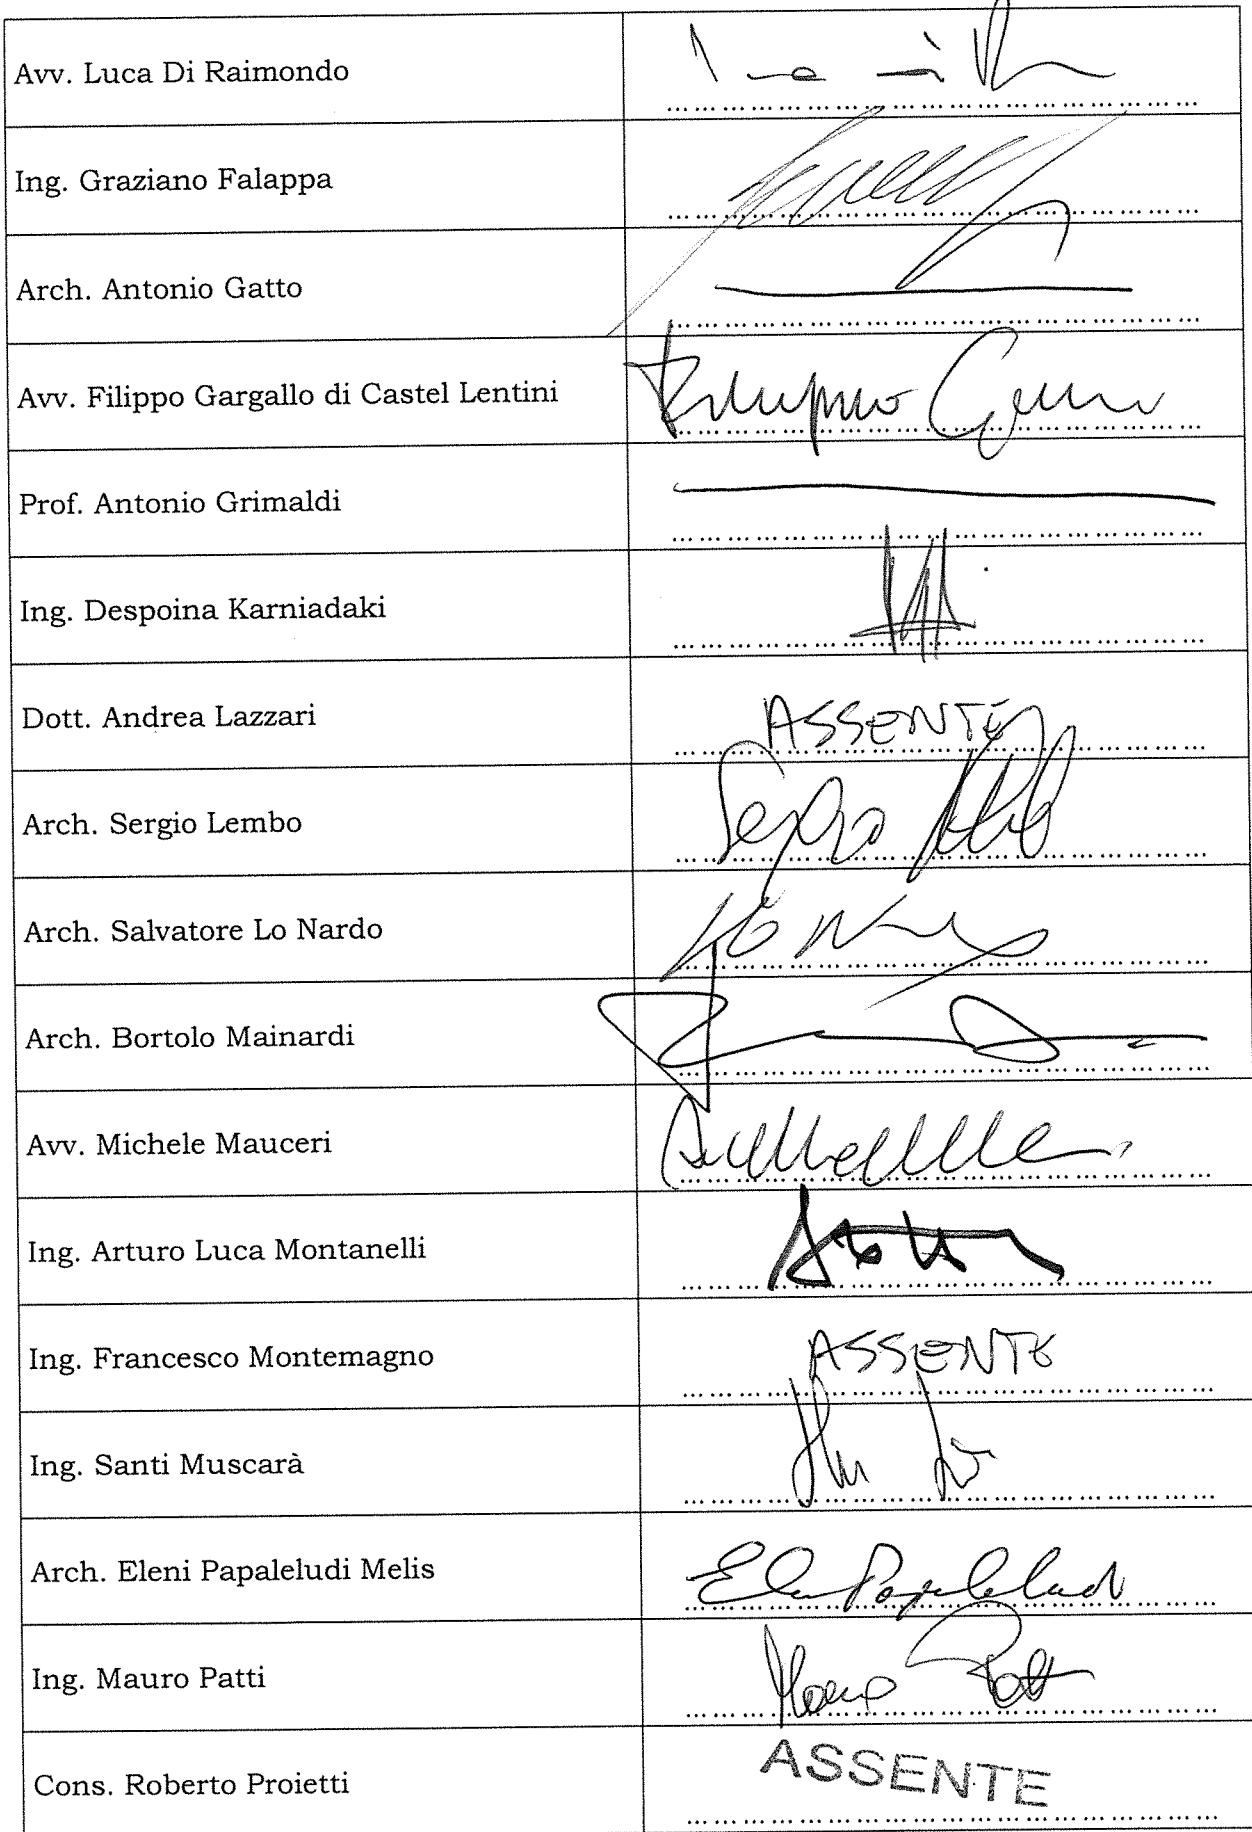 Avv. Luca Di Raimondo
Ing. Graziano Falappa
Arch. Antonio Gatto
Avv. Filippo Gargallo di Castel Lentini
Prof. Antonio Grimaldi
Ing. Despoina Karniadaki
Dott. Andrea Lazzari ASSENTE
Arch. Sergio Lembo Sergio
Arch. Salvatore Lo Nardo
Arch. Bortolo Mainardi
Avv. Michele Mauceri
Ing. Arturo Luca Montanelli
Ing. Francesco Montemagno ASSENTE
Ing. Santi Muscarà
Arch. Eleni Papaleludi Melis
Ing. Mauro Patti
Cons. Roberto Proietti ASSENTE